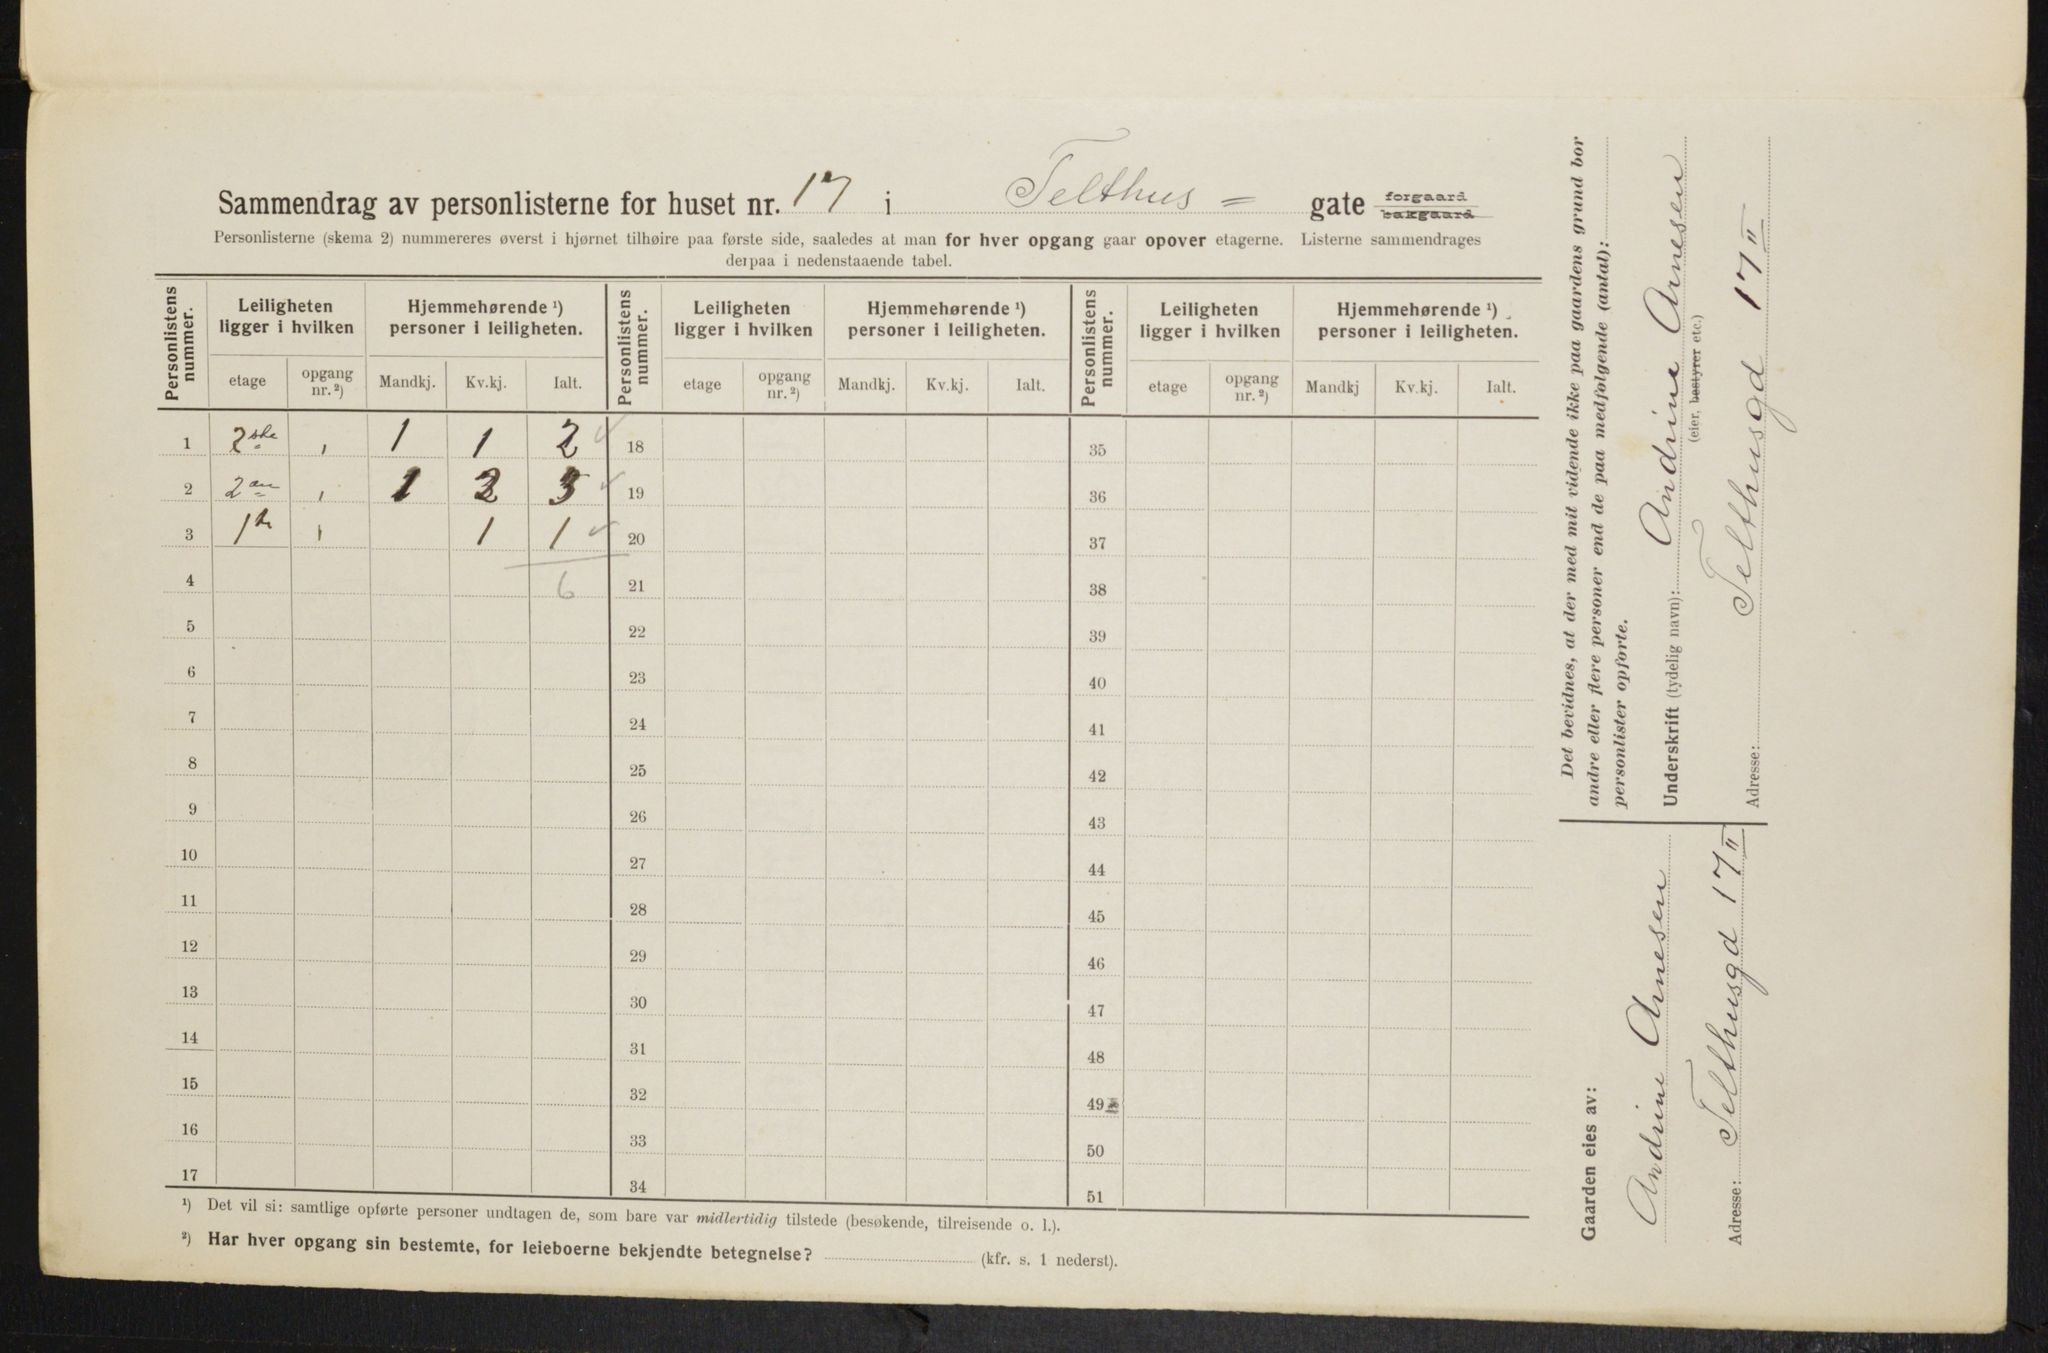 Sammendrag av personlisterne for huset nr. 17 i Telthus= gate forgaard ~~bakgaard~~
Personlisterne (skema 2) nummereres øverst i hjørnet tilhøire paa første side, saaledes at man for hver opgang gaar opover etagerne. Listerne sammendrages
derpaa i nedenstaaende tabel.
Personlistens nummer. | Leiligheten ligger i hvilken | Hjemmehørende ¹) personer i leiligheten. | Personlistens nummer. | Leiligheten ligger i hvilken | Hjemmehørende ¹) personer i leiligheten. | Personlistens nummer. | Leiligheten ligger i hvilken | Hjemmehørende ¹) personer i leiligheten.
etage | opgang nr. ²) | Mandkj. | Kv.kj. | Ialt. | etage | opgang nr. ²) | Mandkj. | Kv.kj. | Ialt. | etage | opgang nr. ²) | Mandkj | Kv.kj. | Ialt.
1 | | 1 | 1 | 2 ✓ | 18 | 35
2 | 2an | 1 | 2 | 3 ✓ | 19 | 36
3 | 1ste | | 1 | 1 ✓ | 20 | 37
4 | 6 | 21 | 38
5 | 22 | 39
6 | 23 | 40
7 | 24 | 41
8 | 25 | 42
9 | 26 | 43
10 | 27 | 44
11 | 28 | 45
12 | 29 | 46
13 | 30 | 47
14 | 31 | 48
15 | 32 | 49
16 | 33 | 50
17 | 34 | 51
¹) Det vil si: samtlige opførte personer undtagen de, som bare var midlertidig tilstede (besøkende, tilreisende o. l.).
²) Har hver opgang sin bestemte, for leieboerne bekjendte betegnelse? (kfr. s. 1 nederst).
Det bevidnes, at der med mit vidende ikke paa gaardens grund bor
andre eller flere personer end de paa medfølgende (antal):
personlister opførte.
Underskrift (tydelig navn): Andrine Arnesen
(eier, ~~bestyrer~~ etc.)
Adresse: Telthusgd 17 II
Gaarden eies av:
Andrine Arnesen
Adresse: Telthusgd 17 II